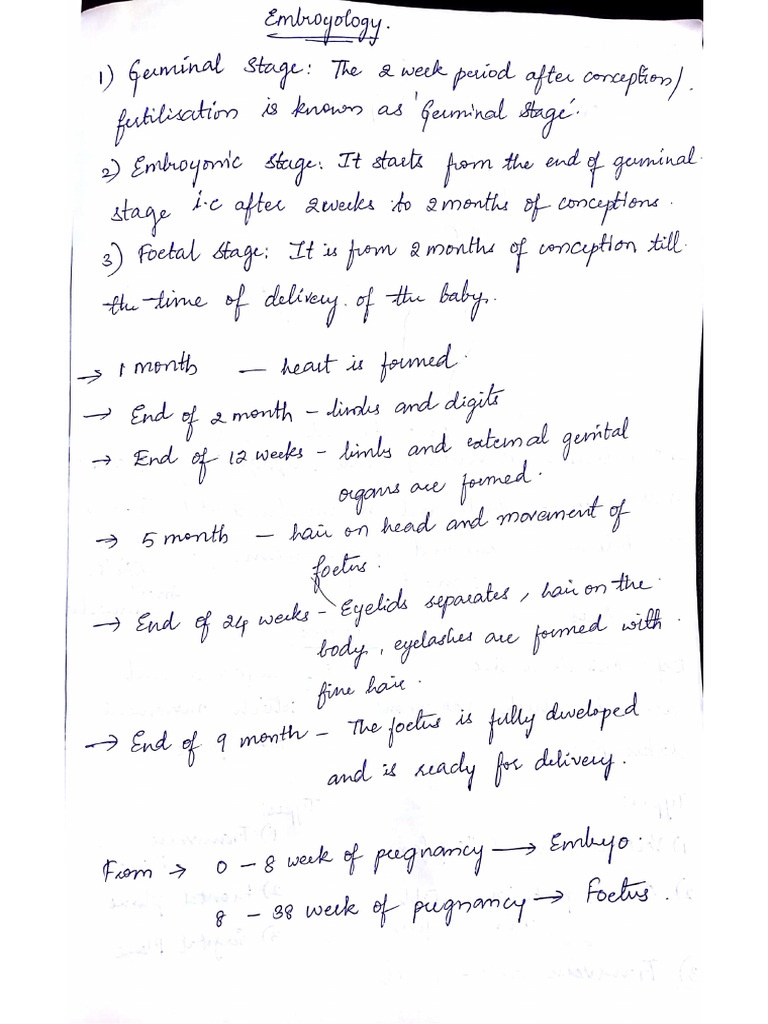 Embroyology.
1) Germinal Stage: The 2 week period after conception/.
fertilisation is known as 'Germinal stage'.
2) Embroyonic stage: It starts from the end of germinal.
stage i.e after 2weeks to 2 months of conceptions.
3) Foetal stage: It is from 2 months of conception till
the time of delivery. of the baby.
→ 1 month — heart is formed.
→ End of 2 month – limbs and digits
→ End of 12 weeks – limbs and external genital
organs are formed.
→ 5 month – hair on head and movement of
foetus.
→ End of 24 weeks – Eyelids separates, hair on the
body, eyelashes are formed with
fine hair.
→ End of 9 month – The foetus is fully developed
and is ready for delivery.
From → 0 – 8 week of pregnancy → Embryo.
8 – 38 week of pregnancy → Foetus.